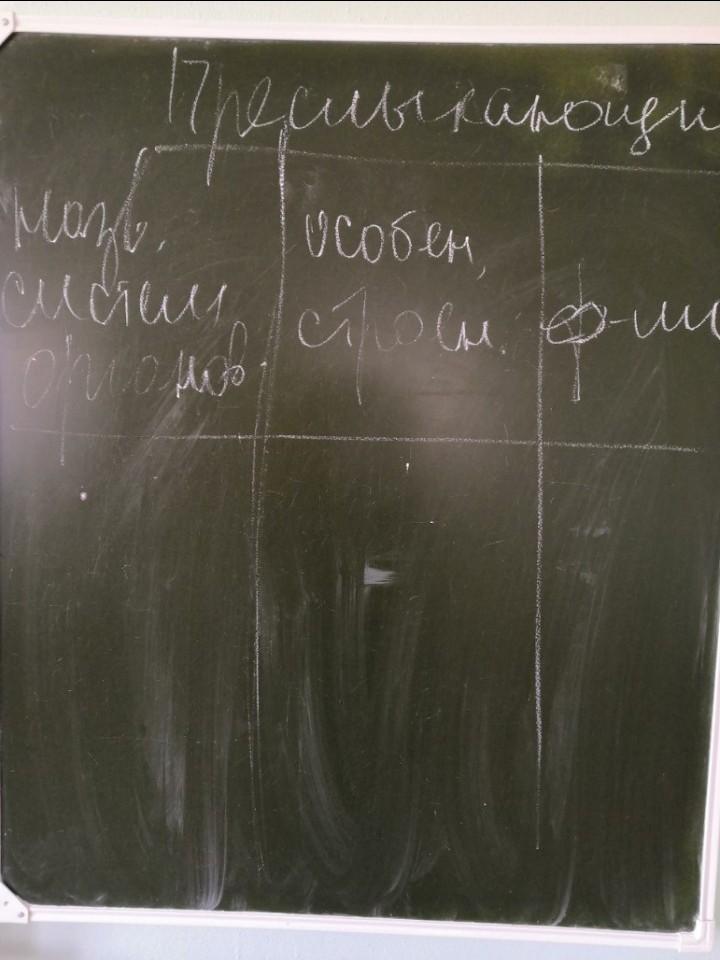 Пресмыкающи
назв.
систем
органов.
особен,
строен.
ф-ци